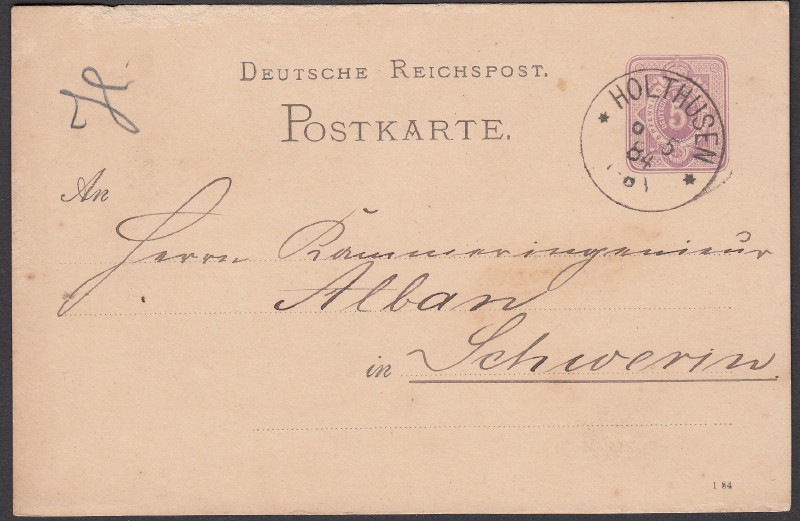 DEUTSCHE REICHSPOST.
POSTKARTE.
HOLTHUSEN
5
84
5
An
Herrn Kammeringenieur
Alban
in Schwerin
1 84